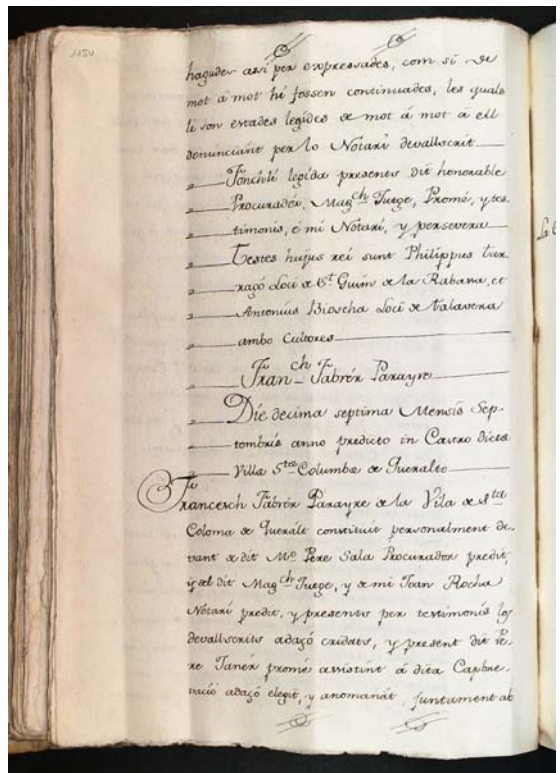 1150
hagudes assi per expressades, com si de
mot á mot hí fossen continuades, les quals
li son estades legídes de mot á mot a ell
denunciánt per lo Notarí devallscrit
Fonchlí legída presents dit honorable
Procuradór, Mag.ch Jutge, Promè, y tes-
timonis, é mi Notarí, y persevera
Testes hujus rei sunt Philippus tar-
ragó Loci de S.t Guim de la Rabassa, et
Antonius Bioscha Loci de talavera
ambo Cultores
Fran.ch Fabrér Parayre
Díe decima septima Mensis Sep-
tembris anno predicto in Castro dicta
Villa S.tae Columbae de Queralto
Francesch Fabrér Parayre de la Vila de S.ta
Coloma de Queralt constituit personalment de-
vant de dit M.o Pere Sala Procurador predit,
y del dit Mag.ch Jutge, y de mi Joan Rocha
Notarí predit, y presents per testimonis los
devallscrits adaçó cridats, y present dit Pe-
re Janér promè assistint á dita Capbre-
vació adaçó elegit, y anomanát, juntament ab